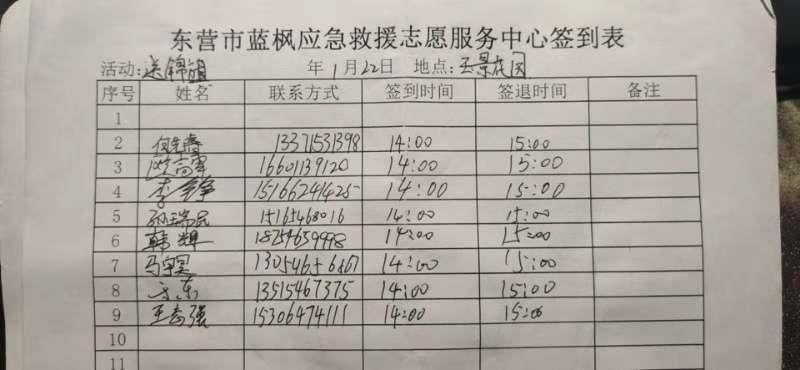 东营市蓝枫应急救援志愿服务中心签到表
活动:送锦旗 年1月22日 地点:玉景花园
序号 姓名 联系方式 签到时间 签退时间 备注
1
2 13371531398 14:00 15:00
3 16601139120 14:00 15:00
4 李铮 15166241425 14:00 15:00
5 孙瑞民 15165468016 14:00 15:00
6 韩辉 18254659998 14:00 15:00
7 14:00 15:00
8 13515467375 14:00 15:00
9 王志强 15306474111 14:00 15:00
10
11